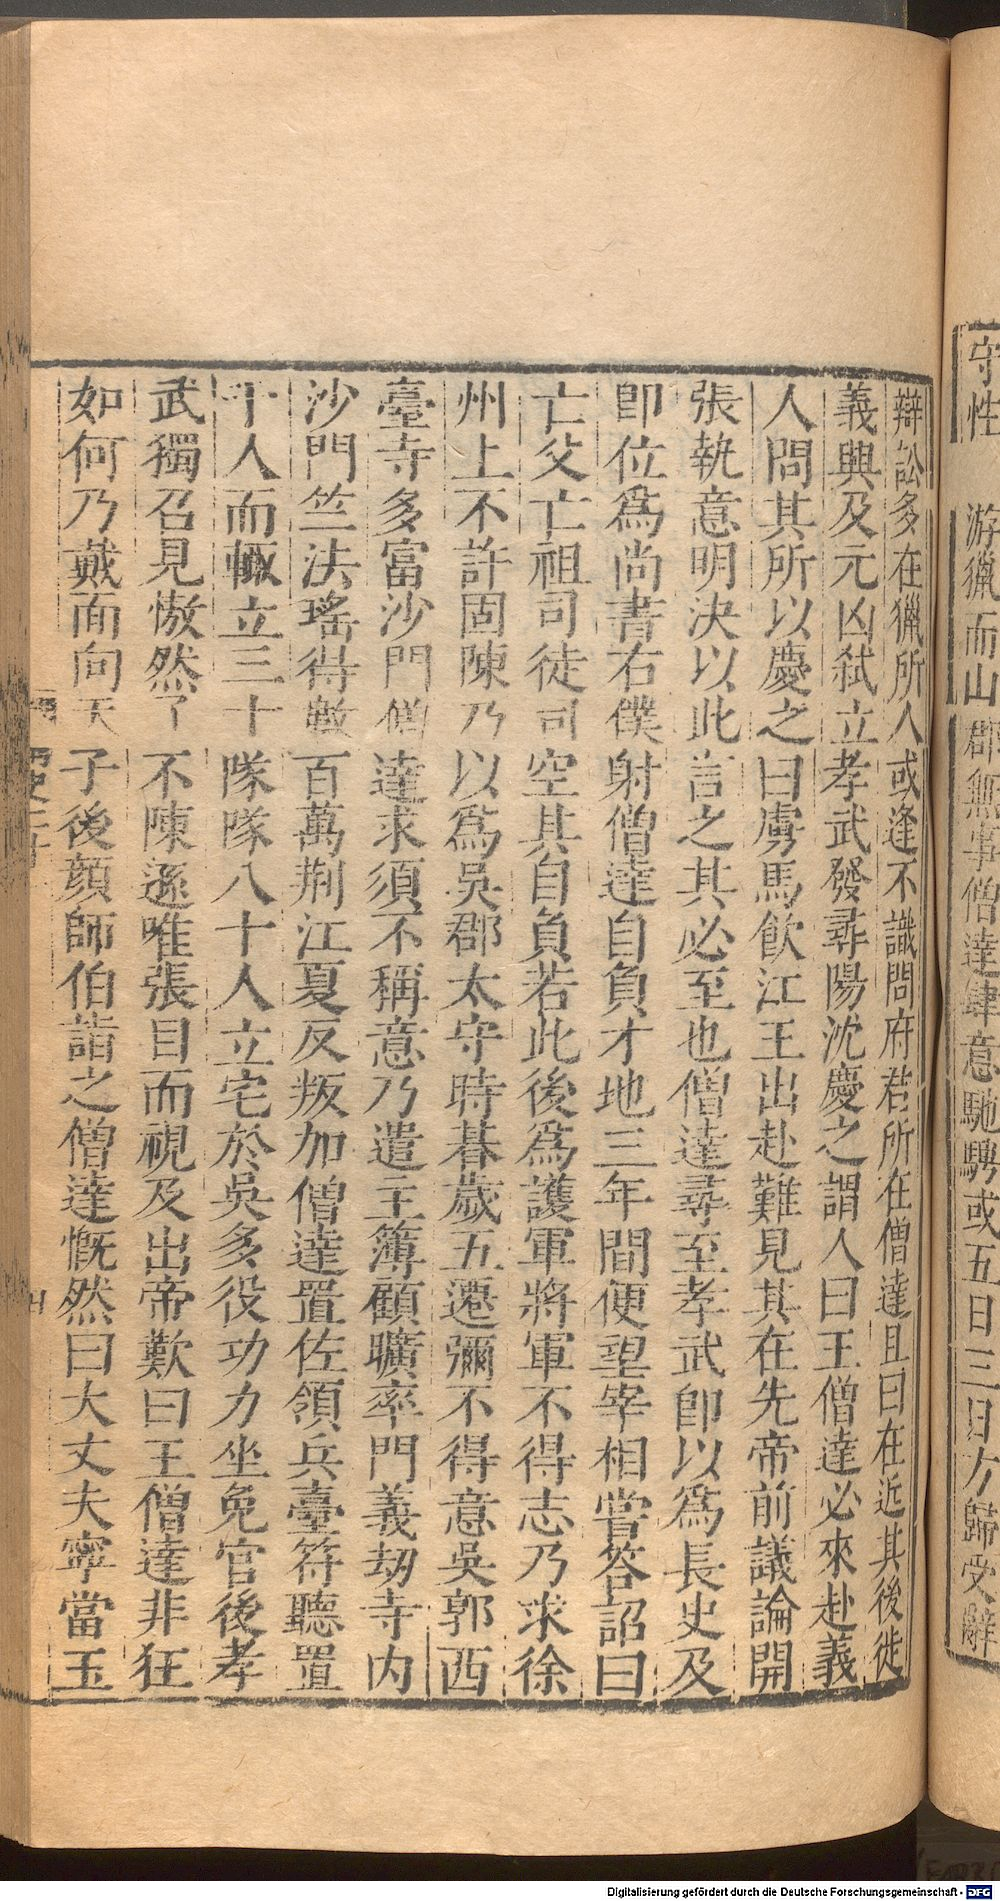 守性　游獵而山郡無事僧達肆意馳騁或五日三日方歸受辭
辯訟多在獵所人或逢不識問府君所在僧達且曰在近其後徙
義興及元凶弑立孝武發尋陽沈慶之謂人曰王僧達必來赴義
人問其所以慶之曰虜馬飲江王出赴難見其在先帝前議論開
張執意明決以此言之其必至也僧達尋至孝武即以為長史及
即位爲尚書右僕射僧達自負才地三年間便望宰相嘗答詔曰
亡父亡祖司徒司空其自負若此後爲護軍將軍不得志乃求徐
州上不許固陳乃以爲吳郡太守時暮歲五遷彌不得意吳郭西
臺寺多富沙門僧達求須不稱意乃遣主簿顧曠率門義劫寺内
沙門竺法瑤得數百萬荆江夏反叛加僧達置佐領兵臺符聽置
千人而輙立三十隊隊八十人立宅於吳多役功力坐免官後孝
武獨召見慠然了不陳遜唯張目而視及出帝歎曰王僧達非狂
如何乃戴面向天子後顔師伯詣之僧達慨然曰大丈夫寧當玉
Digitalisierung gefördert durch die Deutsche Forschungsgemeinschaft - DFG